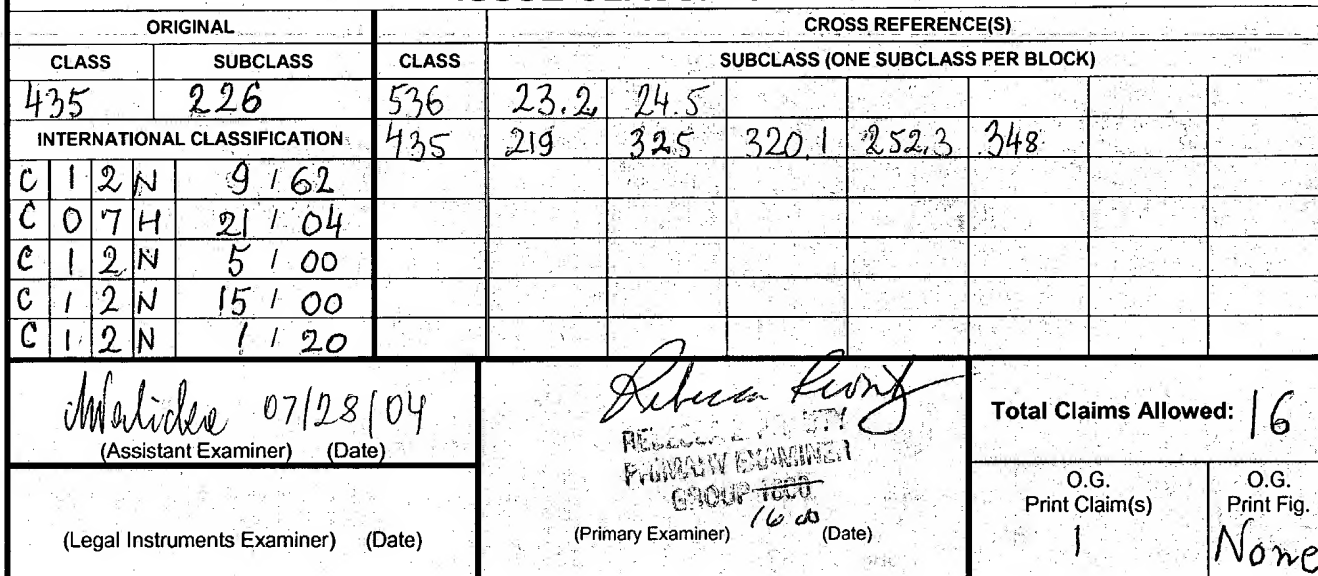 ORIGINAL CROSS REFERENCE(S)
CLASS SUBCLASS CLASS SUBCLASS (ONE SUBCLASS PER BLOCK)
435 226 536 23.2 24.5
INTERNATIONAL CLASSIFICATION 435 219 325 320.1 252.3 348
C 1 2 N 9 / 62
C 0 7 H 21 / 04
C 1 2 N 5 / 00
C 1 2 N 15 / 00
C 1 2 N 1 / 20
07/28/04
(Assistant Examiner) (Date)
Rebecca
PRIMARY EXAMINER
GROUP 1800
1600
(Primary Examiner) (Date)
(Legal Instruments Examiner) (Date)
Total Claims Allowed: 16
O.G. Print Claim(s)
1
O.G. Print Fig.
None